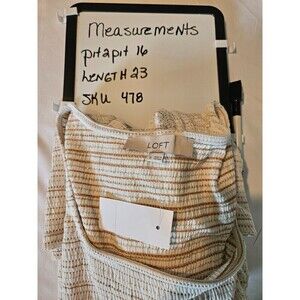 Measurements
pit2pit 16
LENGTH 23
SKU 478
LOFT